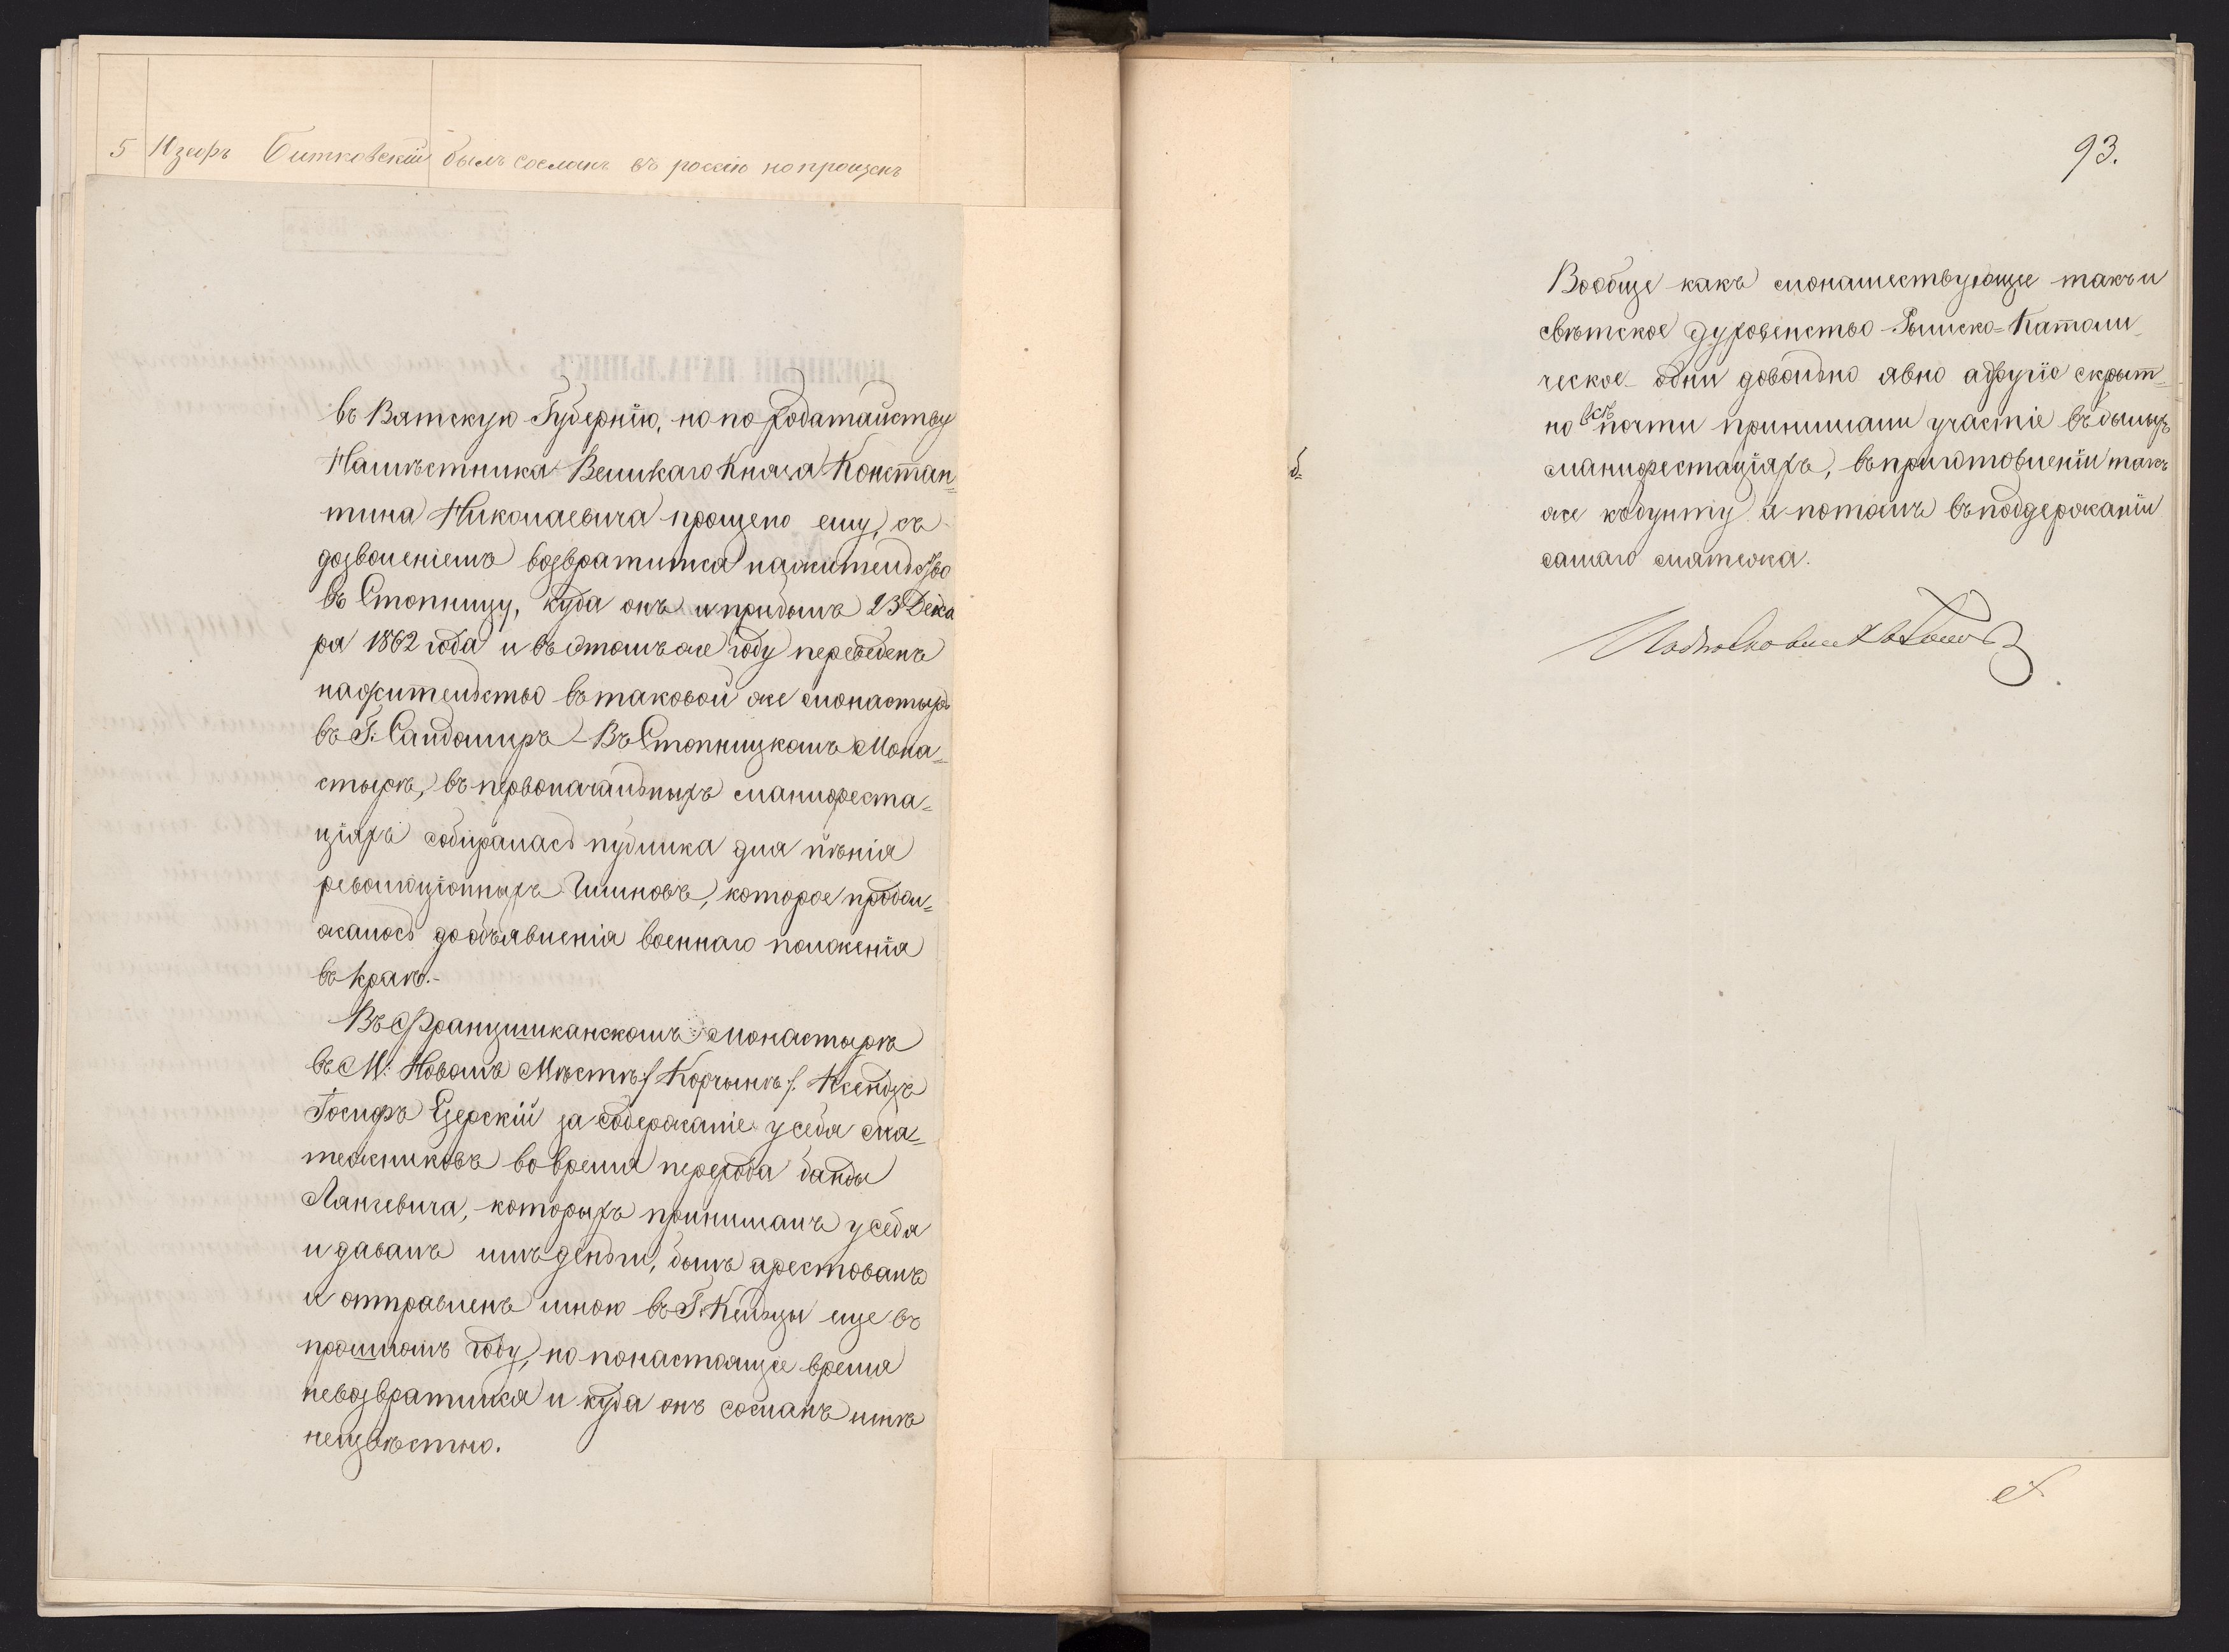 5 Изефъ Битковскій былъ сосланъ въ россію но прощенъ
въ Вятскую Губернію, но по ходатайству
Намѣстника Великаго Князя Констан=
тина Николаевича прощено ему, съ
дозволеніемъ возвратится на жительство
въ Стопницу, куда онъ и прибылъ 23 Дека
ря 1862 года и въ этомъ же году переведенъ
на жительство въ таковой же монастырь
въ Г: Сандомиръ – Въ Стопницкомъ Мона=
стырѣ, въ первоначальныхъ манифеста=
ціяхъ собиралась публика для пѣнія
революціонныхъ Гимновъ, которое продол=
жалось до объявленія военнаго положенія
въ краѣ.-
Въ Францишканскомъ Монастырѣ
въ М: Новомъ Мѣстѣ /: Корчынѣ :/ Ксендзъ
Іосифъ Езерскій за содержаніе у себя мя=
тежниковъ во время перехода банды
Лангевича, которыхъ принималъ у себя
и давалъ имъ деньги, былъ арестованъ
и отправленъ мною въ Г: Кельцы еще въ
прошломъ году, но по настоящее время
невозвратился и куда онъ сосланъ мнѣ
неизвѣстно.
93.
Вообще какъ монашествующее такъ и
свѣтское духовенство Рымско=Католи=
ческое одни довольно явно а другіе скрыт=
но всѣ почти принимали участіе въ былыхъ
манифестаціяхъ, въ приготовленіи такъ
же къ бунту и потомъ въ поддержаніи
самаго мятежа.
Подполковникъ